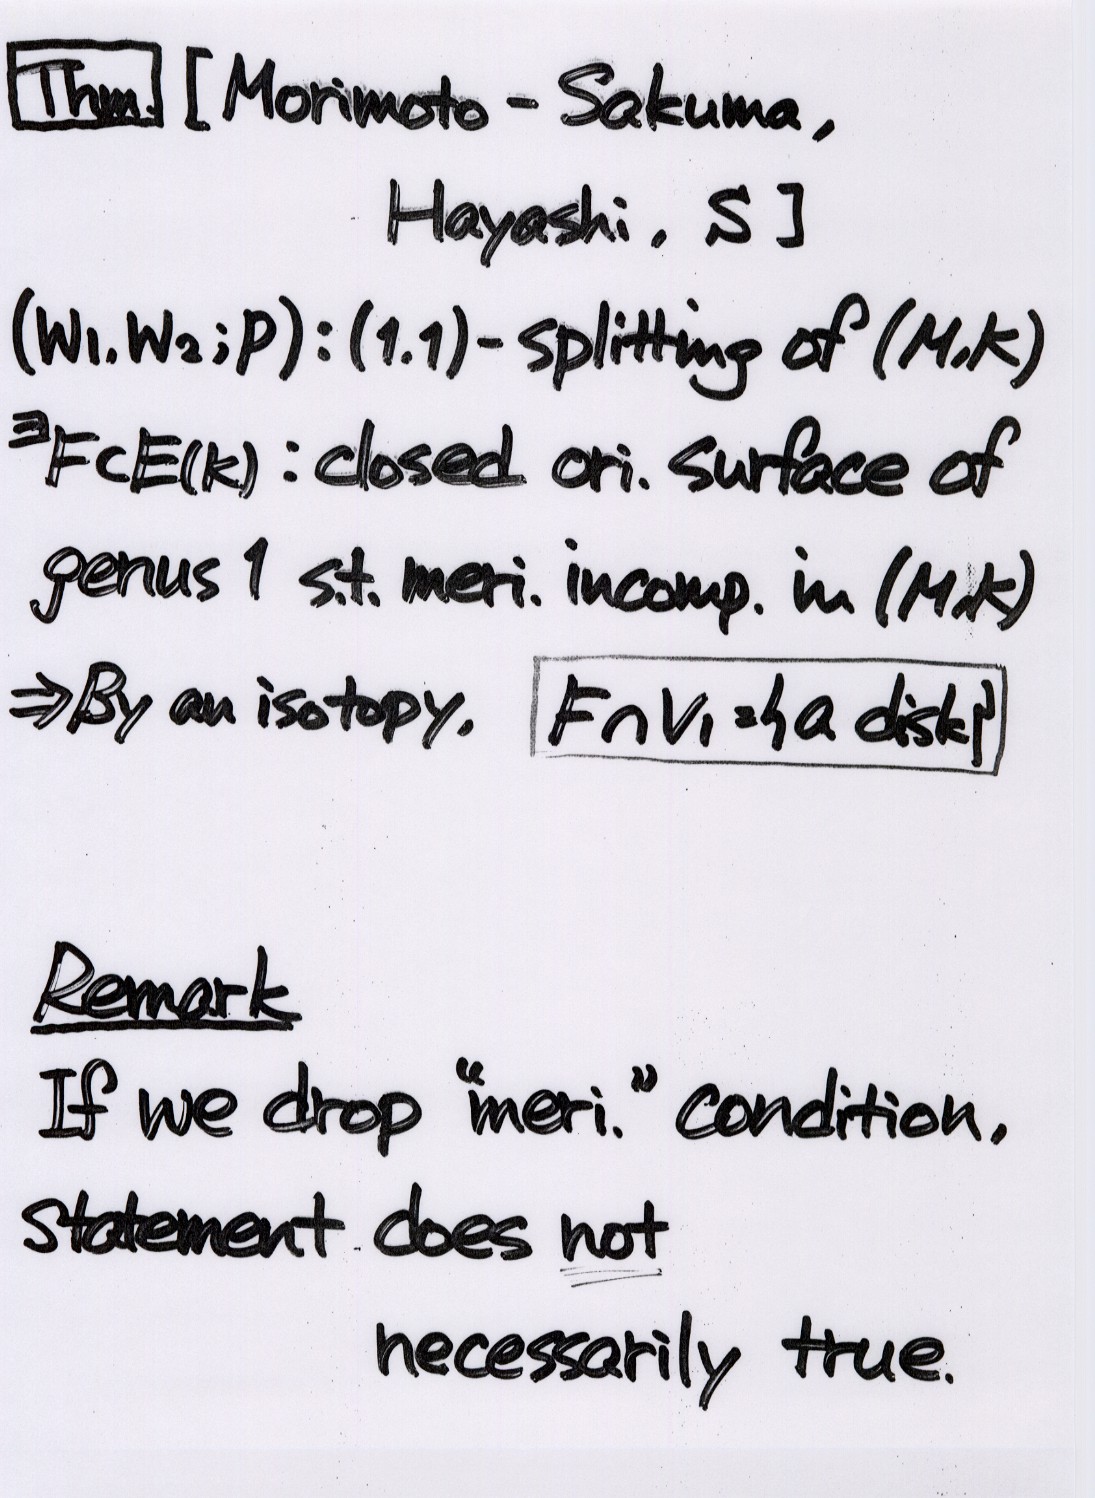 Thm. [Morimoto - Sakuma,
Hayashi, S]
(W1, W2; P) : (1,1) - splitting of (M,K)
∃F⊂E(K) : closed ori. surface of
genus 1 s.t. meri. incomp. in (M,K)
⇒ By an isotopy, F∩V1 = {a disk}
Remark
If we drop “meri.” condition,
statement does not
necessarily true.